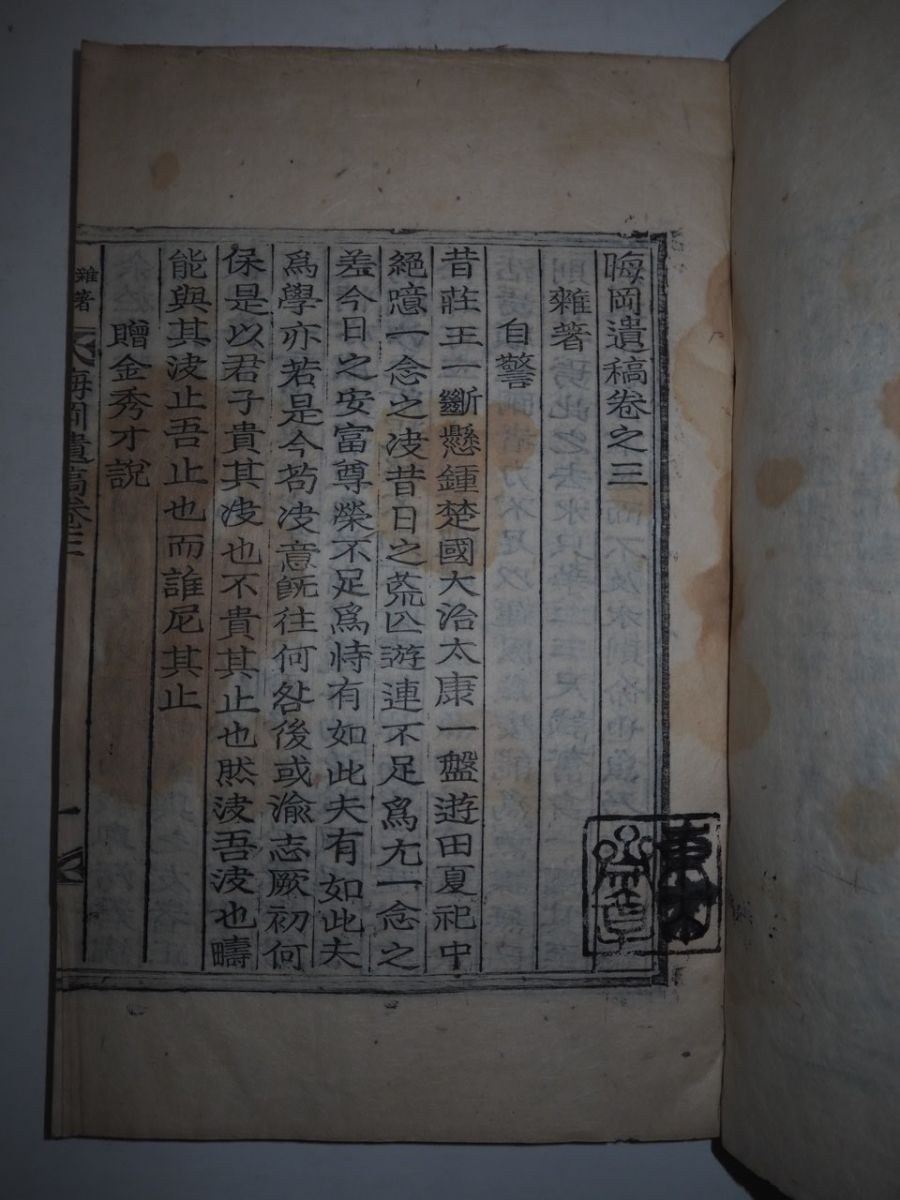 晦岡遺稿卷之三
雜著
自警
昔莊王一斷懸鍾楚國大治太康一盤遊田夏祀中
絕噫一念之浚昔日之荒亾遊連不足爲尤一念之
差今日之安富尊榮不足爲恃有如此夫有如此夫
爲學亦若是今苟浚意旣往何咎後或渝志厥初何
保是以君子貴其浚也不貴其止也然浚吾浚也疇
能與其浚止吾止也而誰尼其止
贈金秀才說
雜著
晦岡遺稿卷三
一